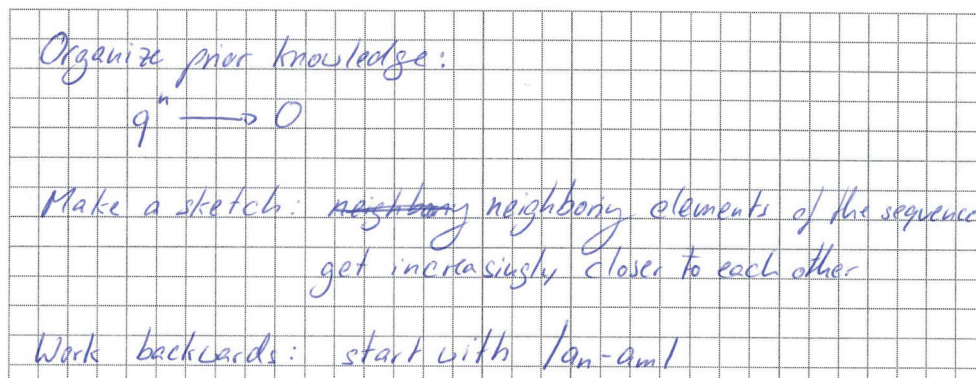 Organize prior knowledge:
qⁿ → 0
Make a sketch: neighbory neighbory elements of the sequence
get increasingly closer to each other
Work backwards: start with |aₙ-aₘ|